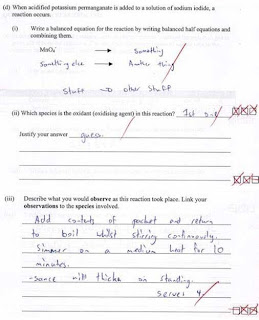 (d) When acidified potassium permanganate is added to a solution of sodium iodide, a
reaction occurs.
(i) Write a balanced equation for the reaction by writing balanced half equations and
combining them.
MnO₄⁻ → Something
Something else → Another thing
Stuff → other stuff
(ii) Which species is the oxidant (oxidising agent) in this reaction? 1st one
Justify your answer guess.
(iii) Describe what you would observe as this reaction took place. Link your
observations to the species involved.
Add contents of packet and return
to boil whilst stirring continuously.
Simmer on a medium heat for 10
minutes.
-sauce will thicken on standing.
Serves 4